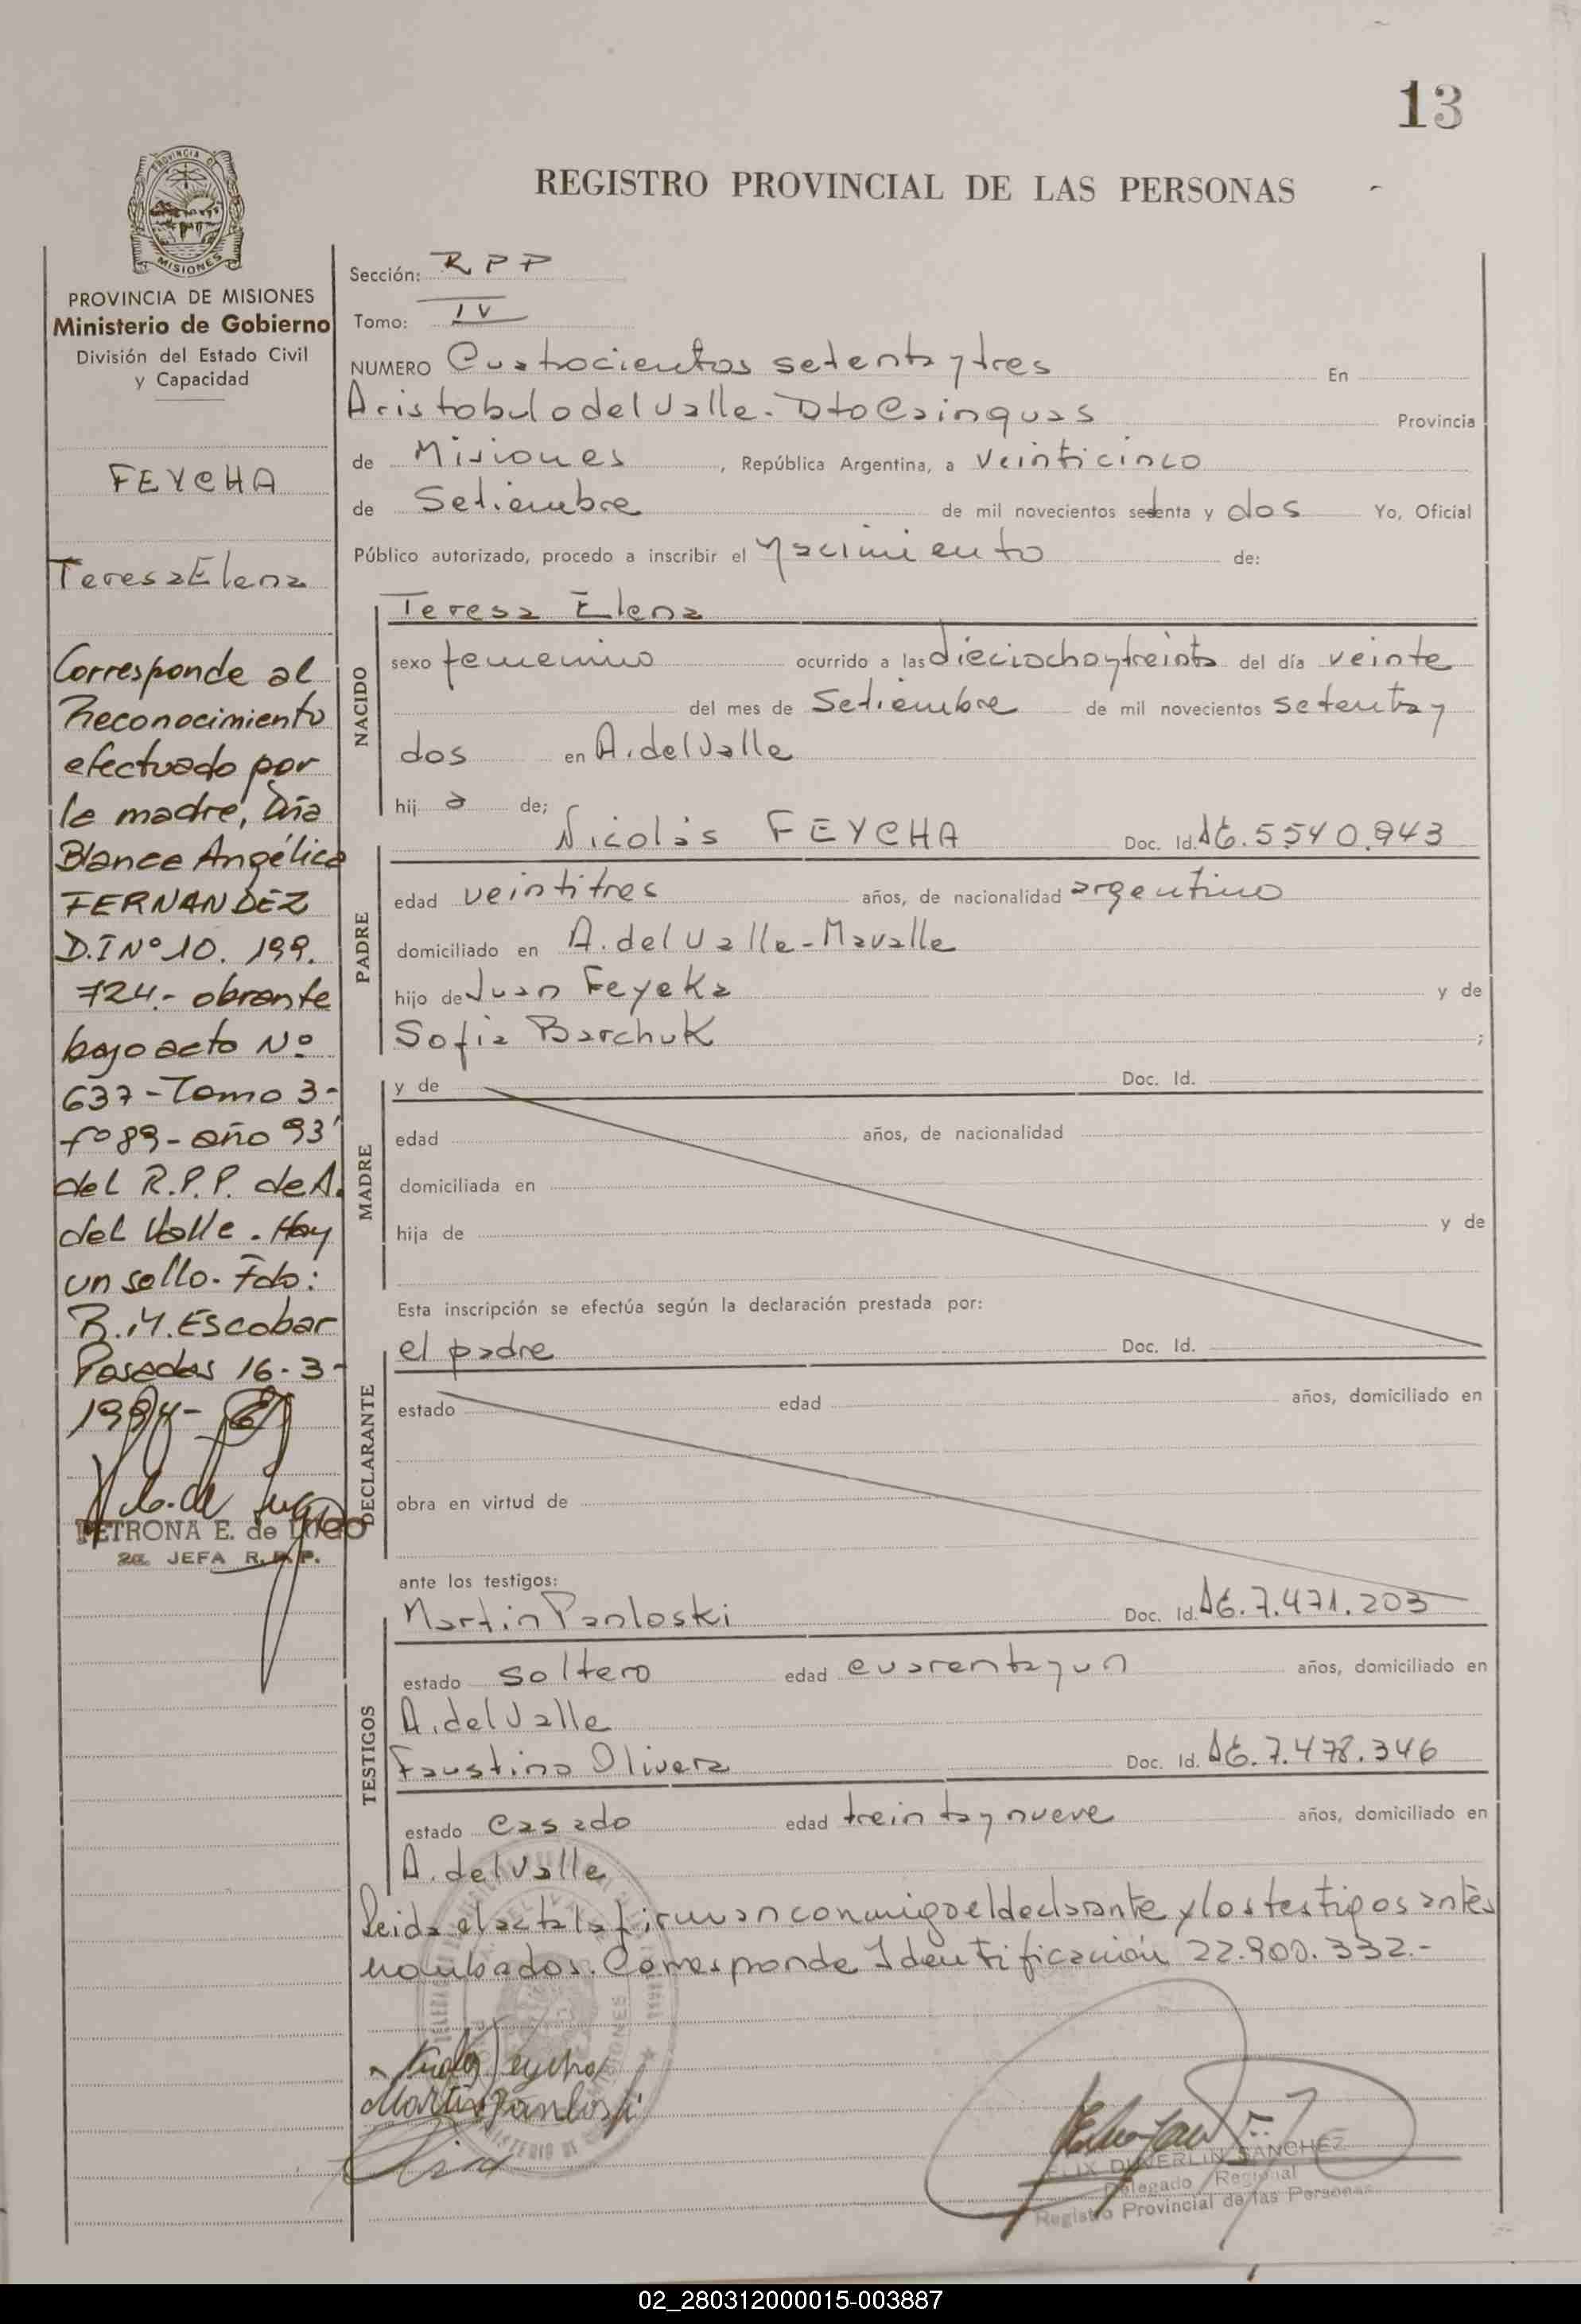 13
REGISTRO PROVINCIAL DE LAS PERSONAS
PROVINCIA DE MISIONES
Ministerio de Gobierno
División del Estado Civil
y Capacidad
FEYCHA
Teresa Elena
Corresponde al
Reconocimiento
efectuado por
la madre, Dña
Blanca Angélica
FERNANDEZ
D.I Nº 10. 199.
724.- obrante
bajo acta Nº
637-Tomo 3-
fº 89-año 93'
del R.P.P. de A.
del Valle. Hay
un sello. Fdo:
R.M. Escobar
Posadas 16-3-
1994-
PETRONA E. de
2a. JEFA R.P.P.
Sección: RPP
Tomo: IV
NUMERO Cuatrocientos setenta y tres En
Aristobulo del Valle. Dto Cainguas Provincia
de Misiones, República Argentina, a Veinticinco
de Setiembre de mil novecientos setenta y dos Yo, Oficial
Público autorizado, procedo a inscribir el Nacimiento de:
NACIDO
Teresa Elena
sexo femenino ocurrido a las dieciocho y treinta del día veinte
del mes de Setiembre de mil novecientos setenta y
dos en A. del Valle
hij a de;
PADRE
Nicolás FEYCHA Doc. Id. 5540.943
edad veintitres años, de nacionalidad argentino
domiciliado en A. del Valle-Mavalle
hijo de Juan Feyeka y de
Sofia Barchuk ;
MADRE
y de Doc. Id.
edad años, de nacionalidad
domiciliada en
hija de y de
Esta inscripción se efectúa según la declaración prestada por:
DECLARANTE
el padre Doc. Id.
estado edad años, domiciliado en
obra en virtud de
ante los testigos:
TESTIGOS
Martin Panloski Doc. Id. 7.471.203
estado soltero edad cuarenta y un años, domiciliado en
A. del Valle
Faustino Olivera Doc. Id. 7.478.346
estado casado edad treinta y nueve años, domiciliado en
A. del Valle
Leida el acta la firman conmigo el declarante y los testigos antes
nombrados. Corresponde Identificación 22.900.332.-
Martin Panloski
FELIX DUVERLIN SANCHEZ
Delegado Regional
Registro Provincial de las Personas
02_280312000015-003887